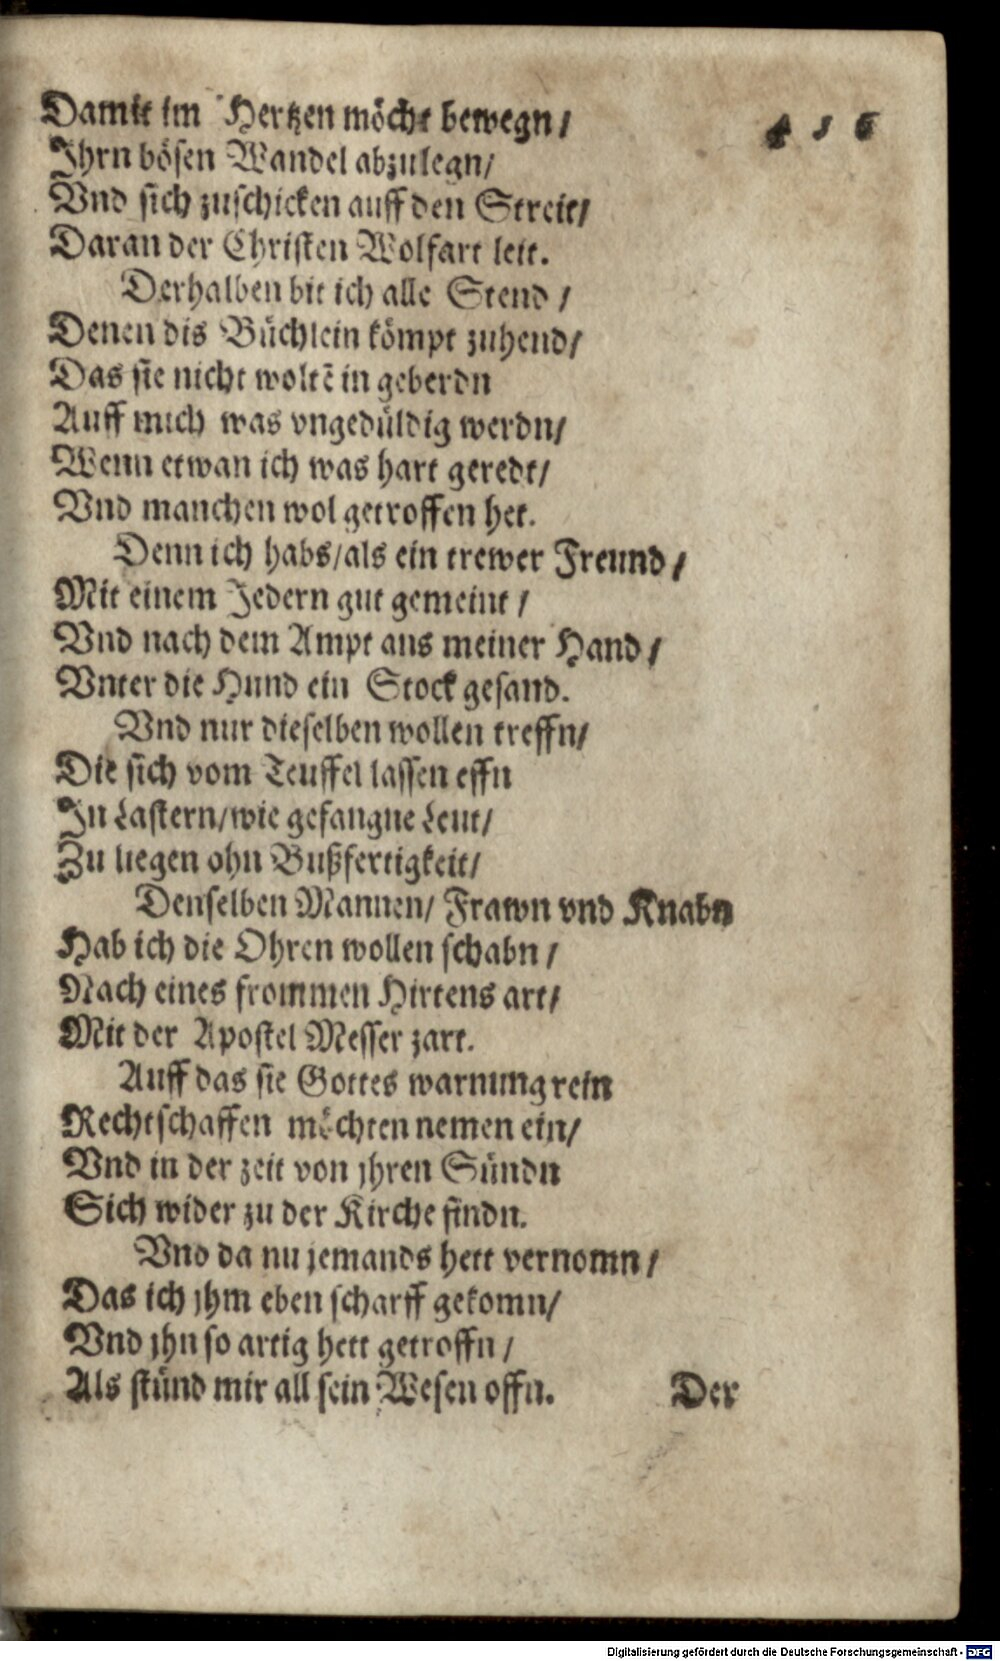 Damit im Hertzen möcht bewegn/
416
Ihrn bösen Wandel abzulegn/
Vnd sich zuschicken auff den Streit/
Daran der Christen Wolfart leit.
Derhalben bit ich alle Stend/
Denen dis Büchlein kömpt zuhend/
Das sie nicht woltē in geberdn
Auff mich was vngedüldig werdn/
Wenn etwan ich was hart geredt/
Vnd manchen wol getroffen het.
Denn ich habs/als ein trewer Freund/
Mit einem Jedern gut gemeint/
Vnd nach dem Ampt aus meiner Hand/
Vnter die Hund ein Stock gesand.
Vnd nur dieselben wollen treffn/
Die sich vom Teuffel lassen effn
In Lastern/wie gefangne Leut/
Zu liegen ohn Bußfertigkeit/
Denselben Mannen/ Frawn vnd Knabn
Hab ich die Ohren wollen schabn/
Nach eines frommen Hirtens art/
Mit der Apostel Messer zart.
Auff das sie Gottes warnung rein
Rechtschaffen möchten nemen ein/
Vnd in der zeit von jhren Sündn
Sich wider zu der Kirche findn.
Vnd da nu jemands hett vernomn/
Das ich jhm eben scharff gekomn/
Vnd jhn so artig hett getroffn/
Als stünd mir all sein Wesen offn.
Der
Digitalisierung gefördert durch die Deutsche Forschungsgemeinschaft - DFG